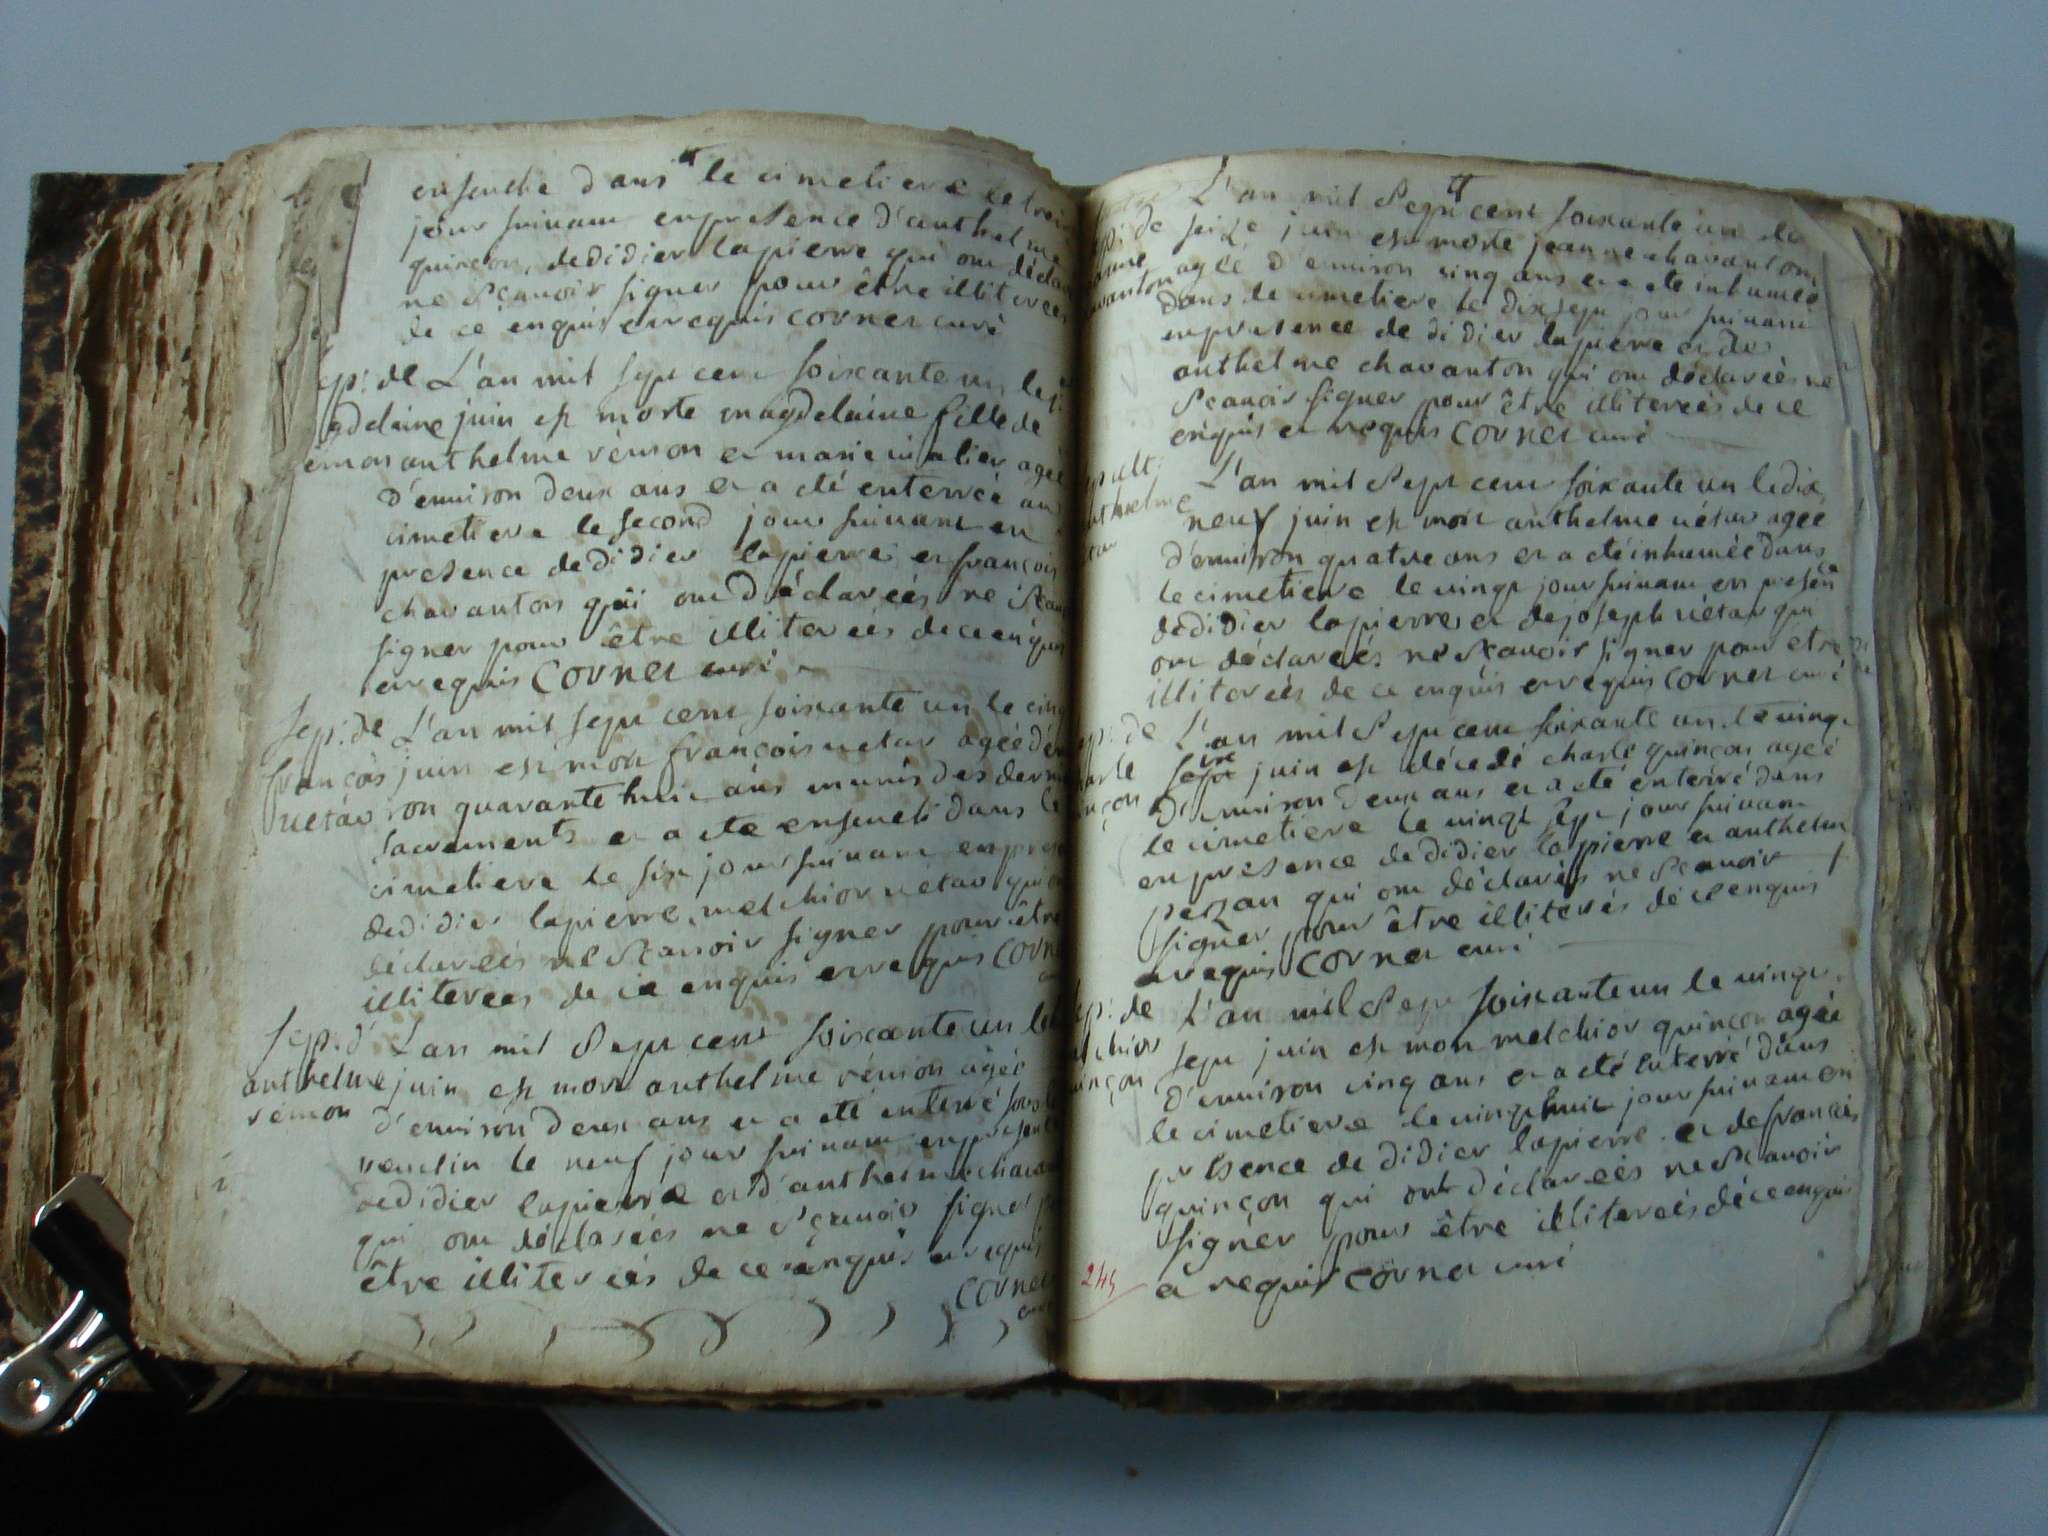 ensevelie dans le cimetiere le trois
jour suivant en presence d'anthelme
quinçon, de didier lapierre qui ont déclar
ne sçavoir signer pour être illiterées
de ce enquis et requis Cornet curé
sep: de L'an mil sept cent soixante un le p.
magdelaine juin est morte magdelaine fille de
rémon anthelme rémon et marie agée
d'environ deux ans et a été enterrée au
cimetiere le second jour suivant en
presence de didier lapierre et françois
chavanton qui ont déclareés ne sçau
signer pour être illitereés de ce enquis
et requis Cornet curé
Sep: de L'an mil sept cent soixante un le cinq
françois juin est mort françois uetar agée d'en
uetar iron quarante huit ans munis des dern
sacrements et a été enseveli dans le
cimetiere le six jour suivant en prese
de didier lapierre, melchior uetar qui
déclareés ne sçavoir signer pour être
illiterees de ce enquis et requis Corne
Sep: d' L'an mil sept cent soixante un le
anthelme juin est mort anthelme rémon agée
rémon d'environ deux ans et a été enterré sous le
le neuf jour suivant en presence
de didier lapierre et d'anthelme chavan
qui ont déclareés ne sçavoir signer p
être illitereés de ce enquis et requis
Cornet
curé
L'an mil sept cent soixante un le
sep: de seize juin est morte jeanne chavanton
jeanne agée d'environ cinq ans et a été inhumée
chavanton dans le cimetiere le dixsept jour suivant
en presence de didier lapierre et de
anthelme chavanton qui ont déclareés ne
sçavoir signer pour être illitereés de ce
enquis et requis Cornet curé
sepult: L'an mil sept cent soixante un le dix
anthelme neuf juin est mort anthelme uétar agée
uetar d'environ quatre ans et a été inhumée dans
le cimetiere le vingt jour suivant en presen
de didier lapierre et de joseph uétar qui
ont déclareés ne sçavoir signer pour etre
illitereés de ce enquis et requis Cornet curé
sep: de L'an mil sept cent soixante un le vingt
charle juin est décedé charle quinçon agéé
quinçon d'environ deux ans et a été enterré dans
le cimetiere le vingt sept jour suivant
en presence de didier lapierre et anthelm
perzan qui ont déclarés ne sçavoir
signer pour être illiterés de ce enquis
et requis Cornet curé
sep: de L'an mil sept soixante un le vingt
melchior sept juin est mort melchior quinçon agée
quinçon d'environ cinq ans et a été enterré dans
le cimetiere le vingt huit jour suivant en
presence de didier lapierre et de françois
quinçon qui ont déclareés ne sçavoir
signer pour être illitereés de ce enquis
et requis Cornet curé
245